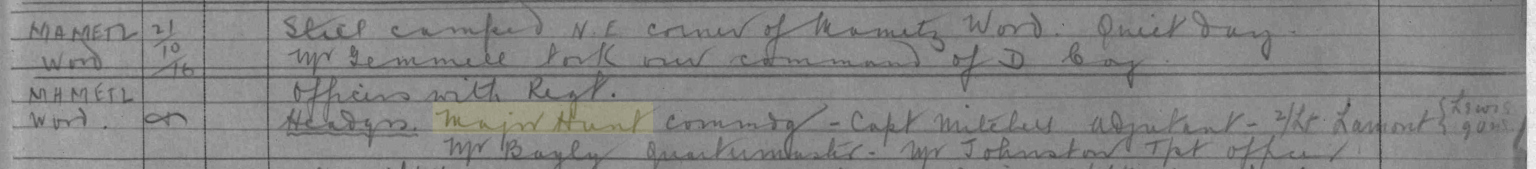 MAMETZ 21/10/16 Still camped N.E corner of Mametz Wood. Quiet day.
Wood Mr Gemmell took over command of D Coy.
MAMETZ Officers with Regt.
Wood. Headqrs. Major Hunt commdg - Capt Mitchell adjutant - 2/Lt Lamont { Lewis guns
Mr Bayly Quartermaster - Mr Johnston Tpt officer